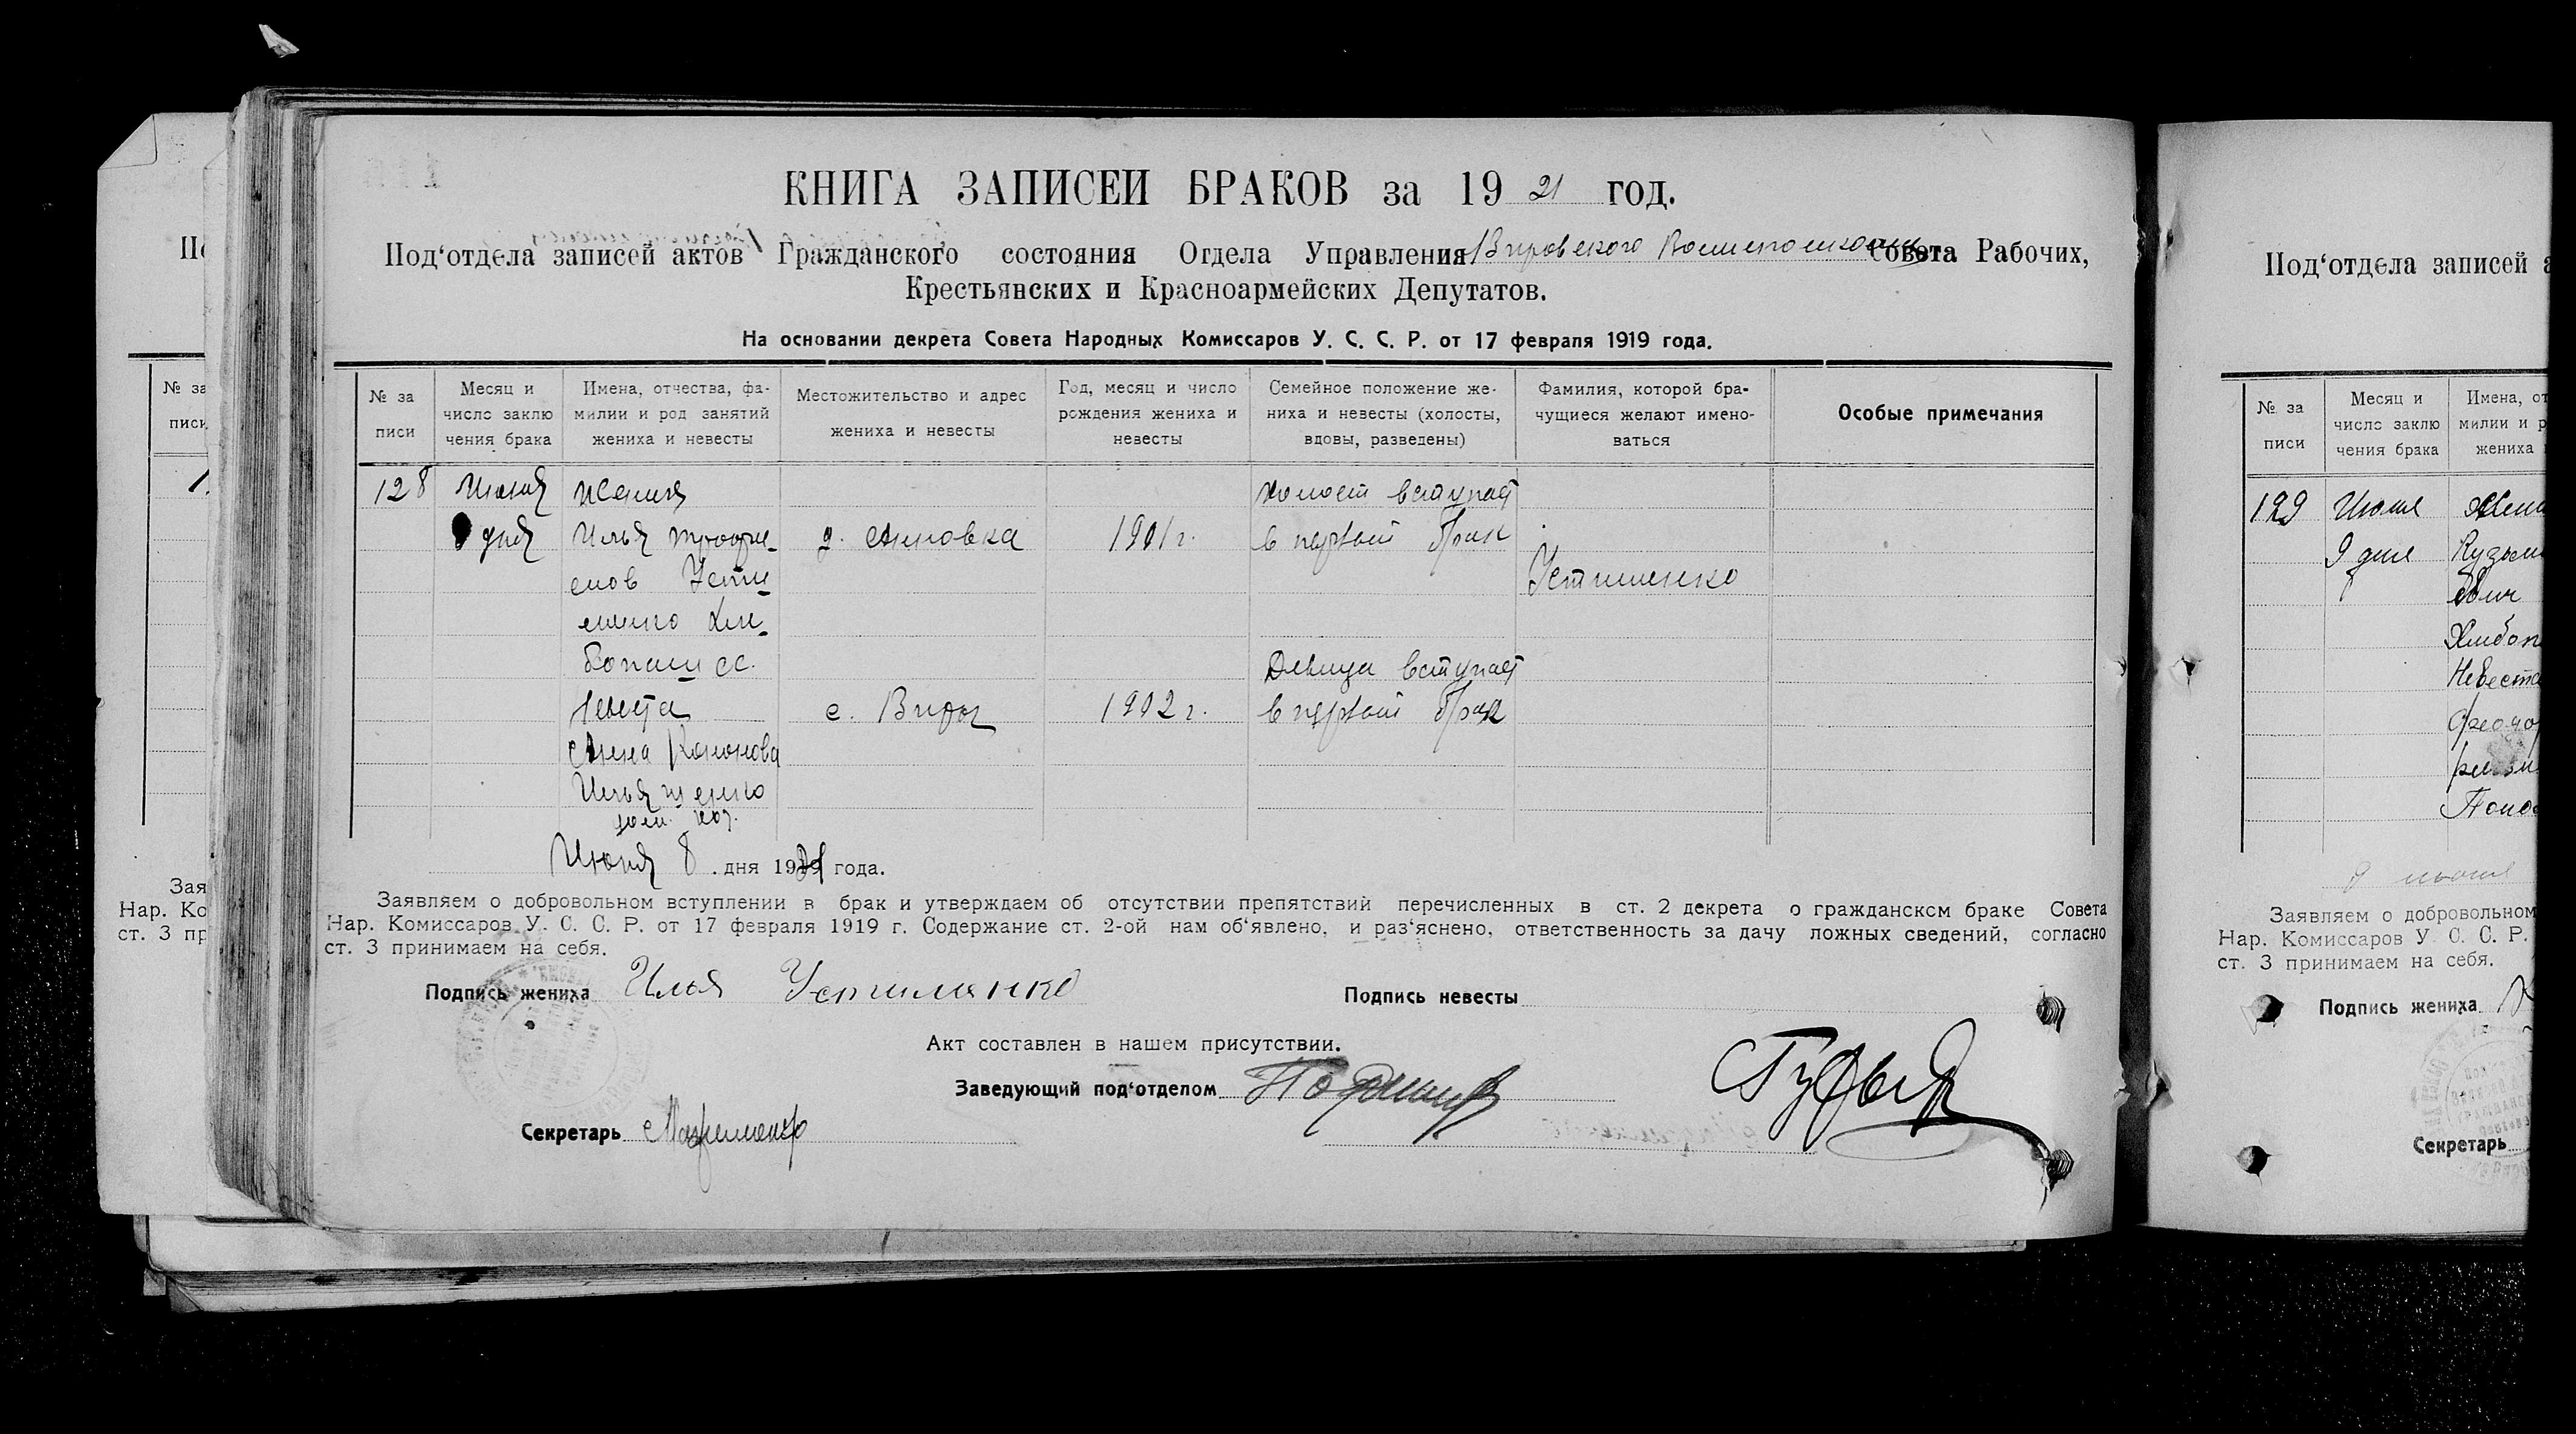 КНИГА ЗАПИСЕЙ БРАКОВ за 19 21 год.
Под‘отдела записей актов Гражданского состояния Отдела Управления Вировского Волисполкома Совета Рабочих,
Крестьянских и Красноармейских Депутатов.
На основании декрета Совета Народных Комиссаров У. С. С. Р. от 17 февраля 1919 года.
№ за писи
Месяц и число заклю чения брака
Имена, отчества, фа- милии и род занятий жениха и невесты
Местожительство и адрес жениха и невесты
Год, месяц и число рождения жениха и невесты
Семейное положение же- ниха и невесты (холосты, вдовы, разведены)
Фамилия, которой бра- чущиеся желают имено- ваться
Особые примечания
128 Июня Жених Холост вступает
8 дня Илья Трофи- д. Анновка 1901 г. в первый брак
мов Усти- Устименко
менко Хле-
бопашец. Девица вступает
Невеста с. Виры 1902 г. в первый брак
Анна Кононова
Ильященко
дом. хоз.
Июня 8 дня 1921 года.
Заявляем о добровольном вступлении в брак и утверждаем об отсутствии препятствий перечисленных в ст. 2 декрета о гражданском браке Совета
Нар. Комиссаров У. С. С. Р. от 17 февраля 1919 г. Содержание ст. 2-ой нам об‘явлено, и раз‘яснено, ответственность за дачу ложных сведений, согласно
ст. 3 принимаем на себя.
Подпись жениха Илья Устименко
Подпись невесты
Акт составлен в нашем присутствии.
Заведующий под‘отделом
Секретарь
Под‘отдела записей
№ за писи
Месяц и число заклю чения брака
Имена, от
милии и р
жениха
129 Июня
9 дня Кузьм
Хлебоп
Невеста
9 июня
Заявляем о добровольном
Нар. Комиссаров У. С. С. Р.
ст. 3 принимаем на себя.
Подпись жениха
Секретарь
№ за
писи
Зая
Нар. Ко
ст. 3 пр